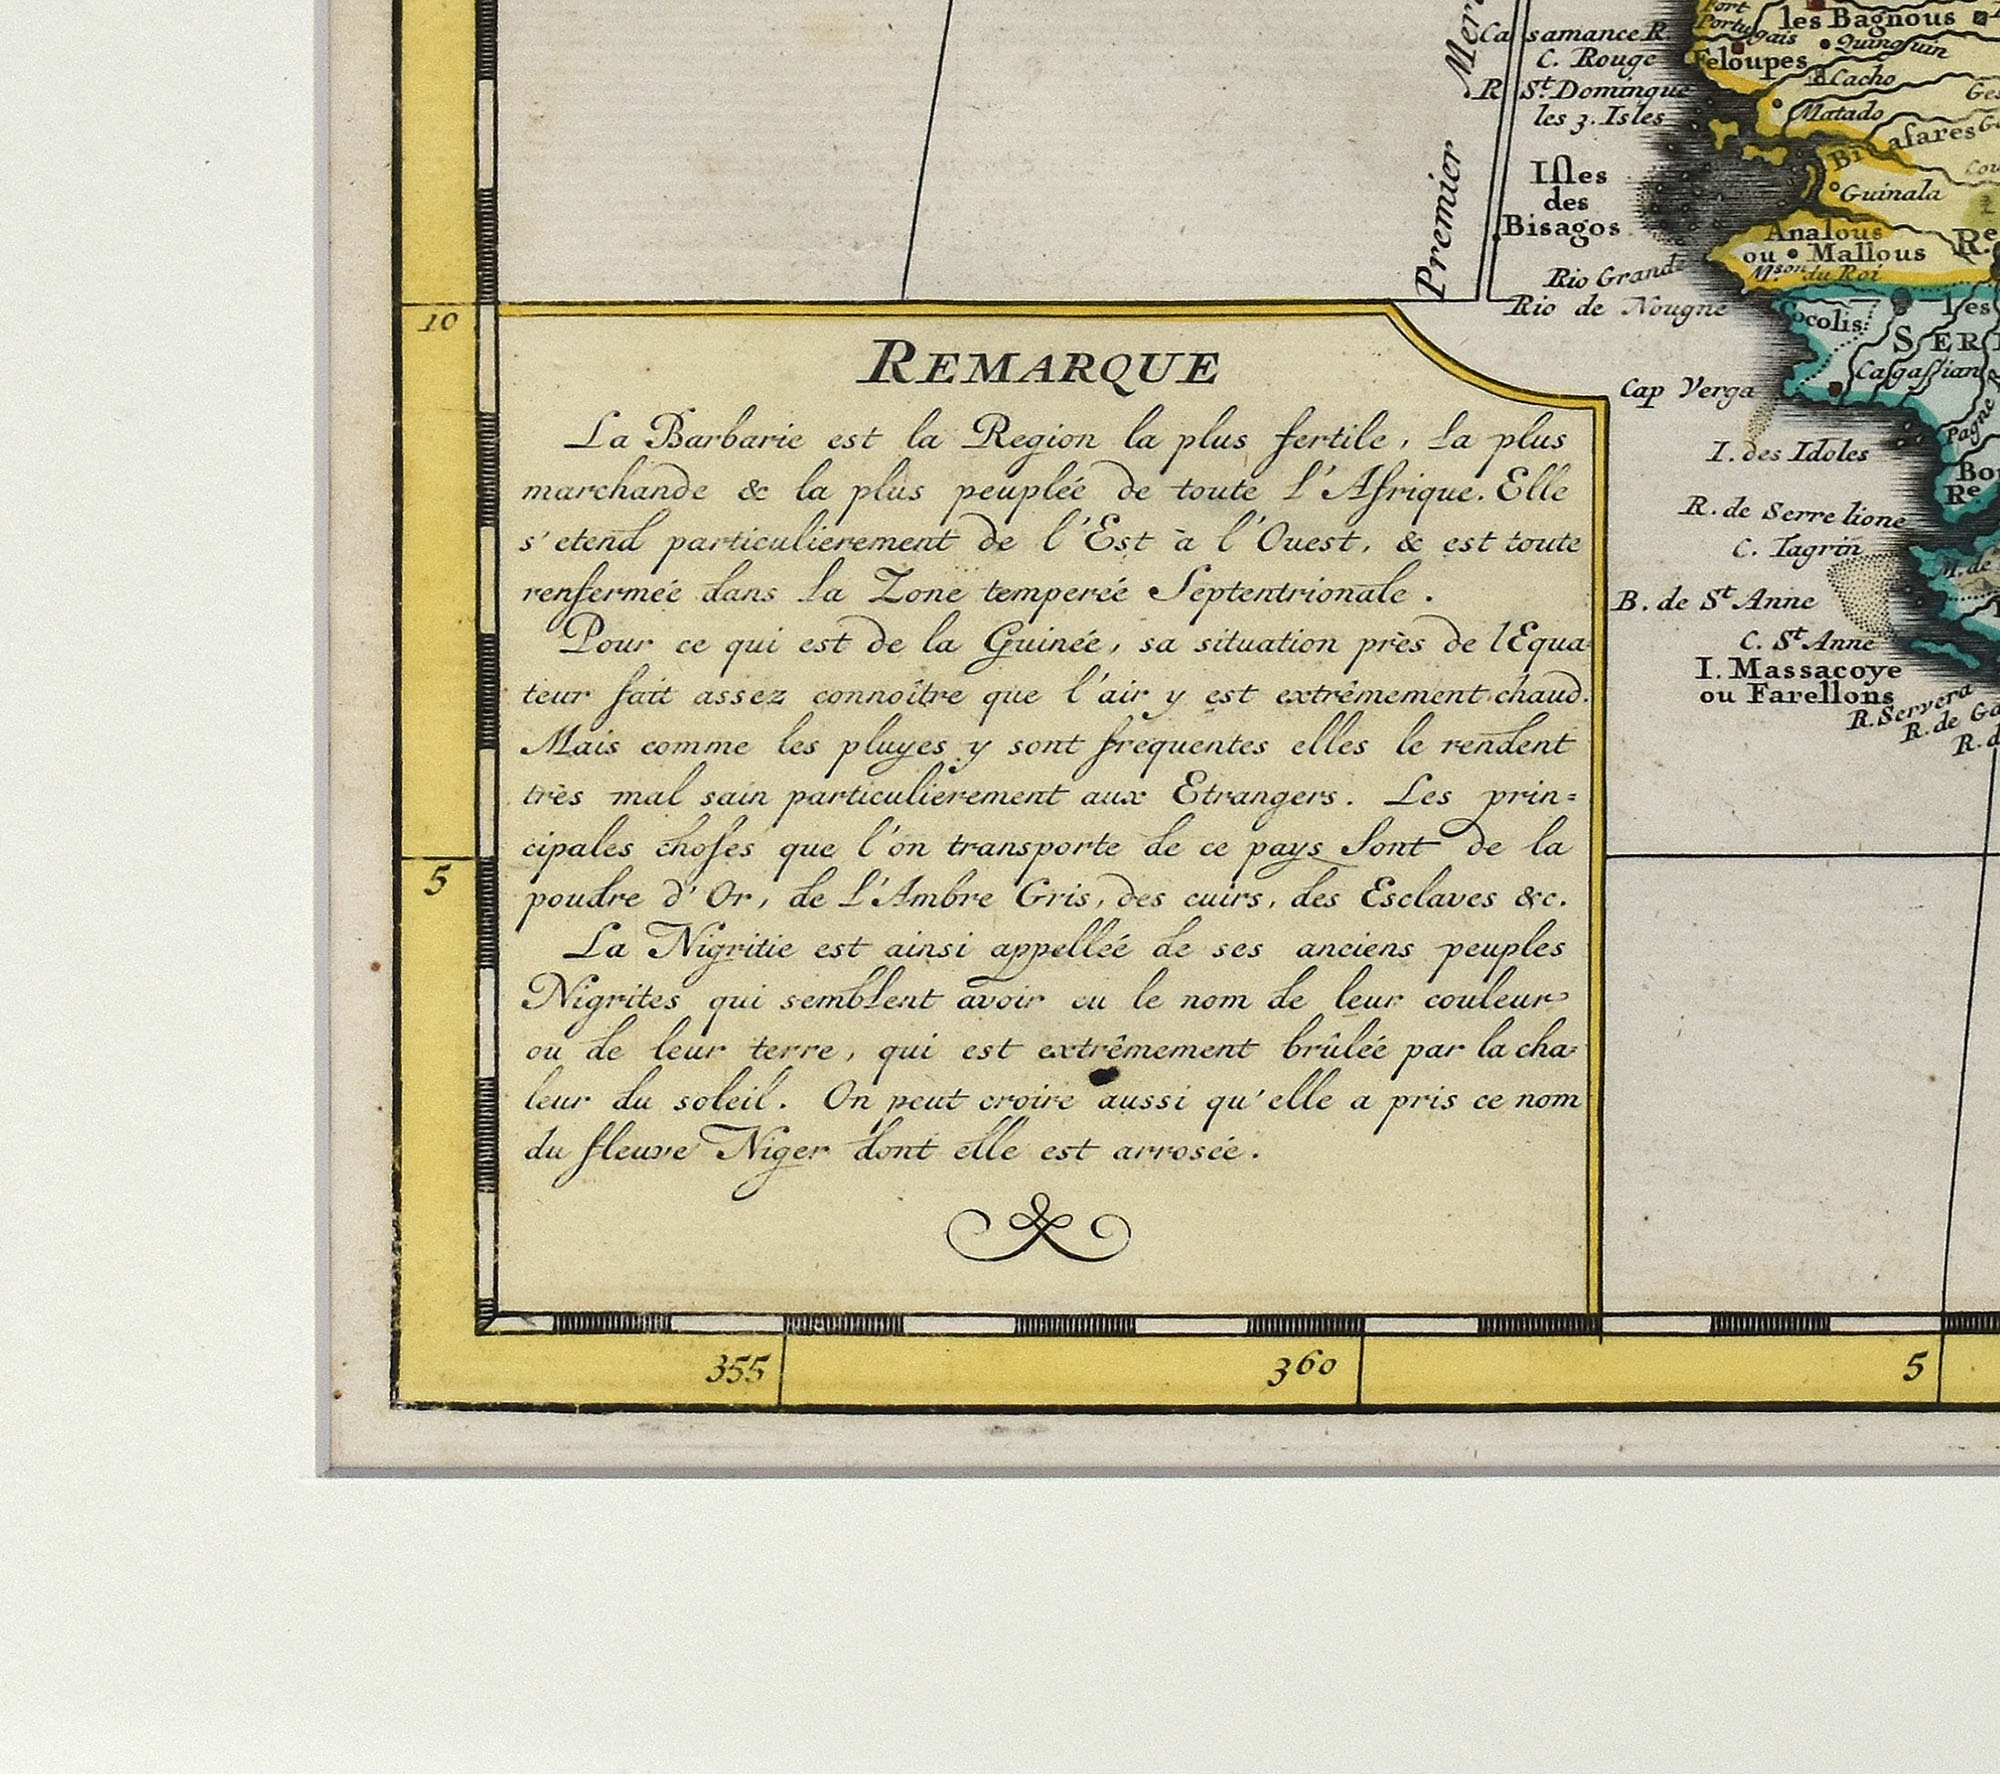 Premier
Casamance R.
C. Rouge
R. St. Domingue
les 3. Isles
Isles
des
Bisagos
Rio Grande
Rio de Nougne
Fort
Portugais
les Bagnous
Quinguin
Feloupes
Cacho
Matado
Guinala
Analous
ou Mallous
Mson du Roi
Cocolis
les
Cap Verga
I. des Idoles
R. de Serre lione
C. Tagrin
B. de St Anne
C. St Anne
I. Massacoye
ou Farellons
R. Servera
10
5
REMARQUE
La Barbarie est la Region la plus fertile, la plus
marchande & la plus peuplée de toute l'Afrique. Elle
s'etend particulierement de l'Est à l'Ouest, & est toute
renfermée dans la Zone temperée Septentrionale.
Pour ce qui est de la Guinée, sa situation près de lEqua-
teur fait assez connoître que l'air y est extrêmement chaud.
Mais comme les pluyes y sont frequentes elles le rendent
très mal sain particulierement aux Etrangers. Les prin=
cipales choses que l'on transporte de ce pays sont de la
poudre d'Or, de l'Ambre Gris, des cuirs, des Esclaves &c.
La Nigritie est ainsi appellée de ses anciens peuples
Nigrites qui semblent avoir eu le nom de leur couleur
ou de leur terre, qui est extrêmement brûlée par la cha-
leur du soleil. On peut croire aussi qu'elle a pris ce nom
du fleuve Niger dont elle est arrosée.
355
360
5